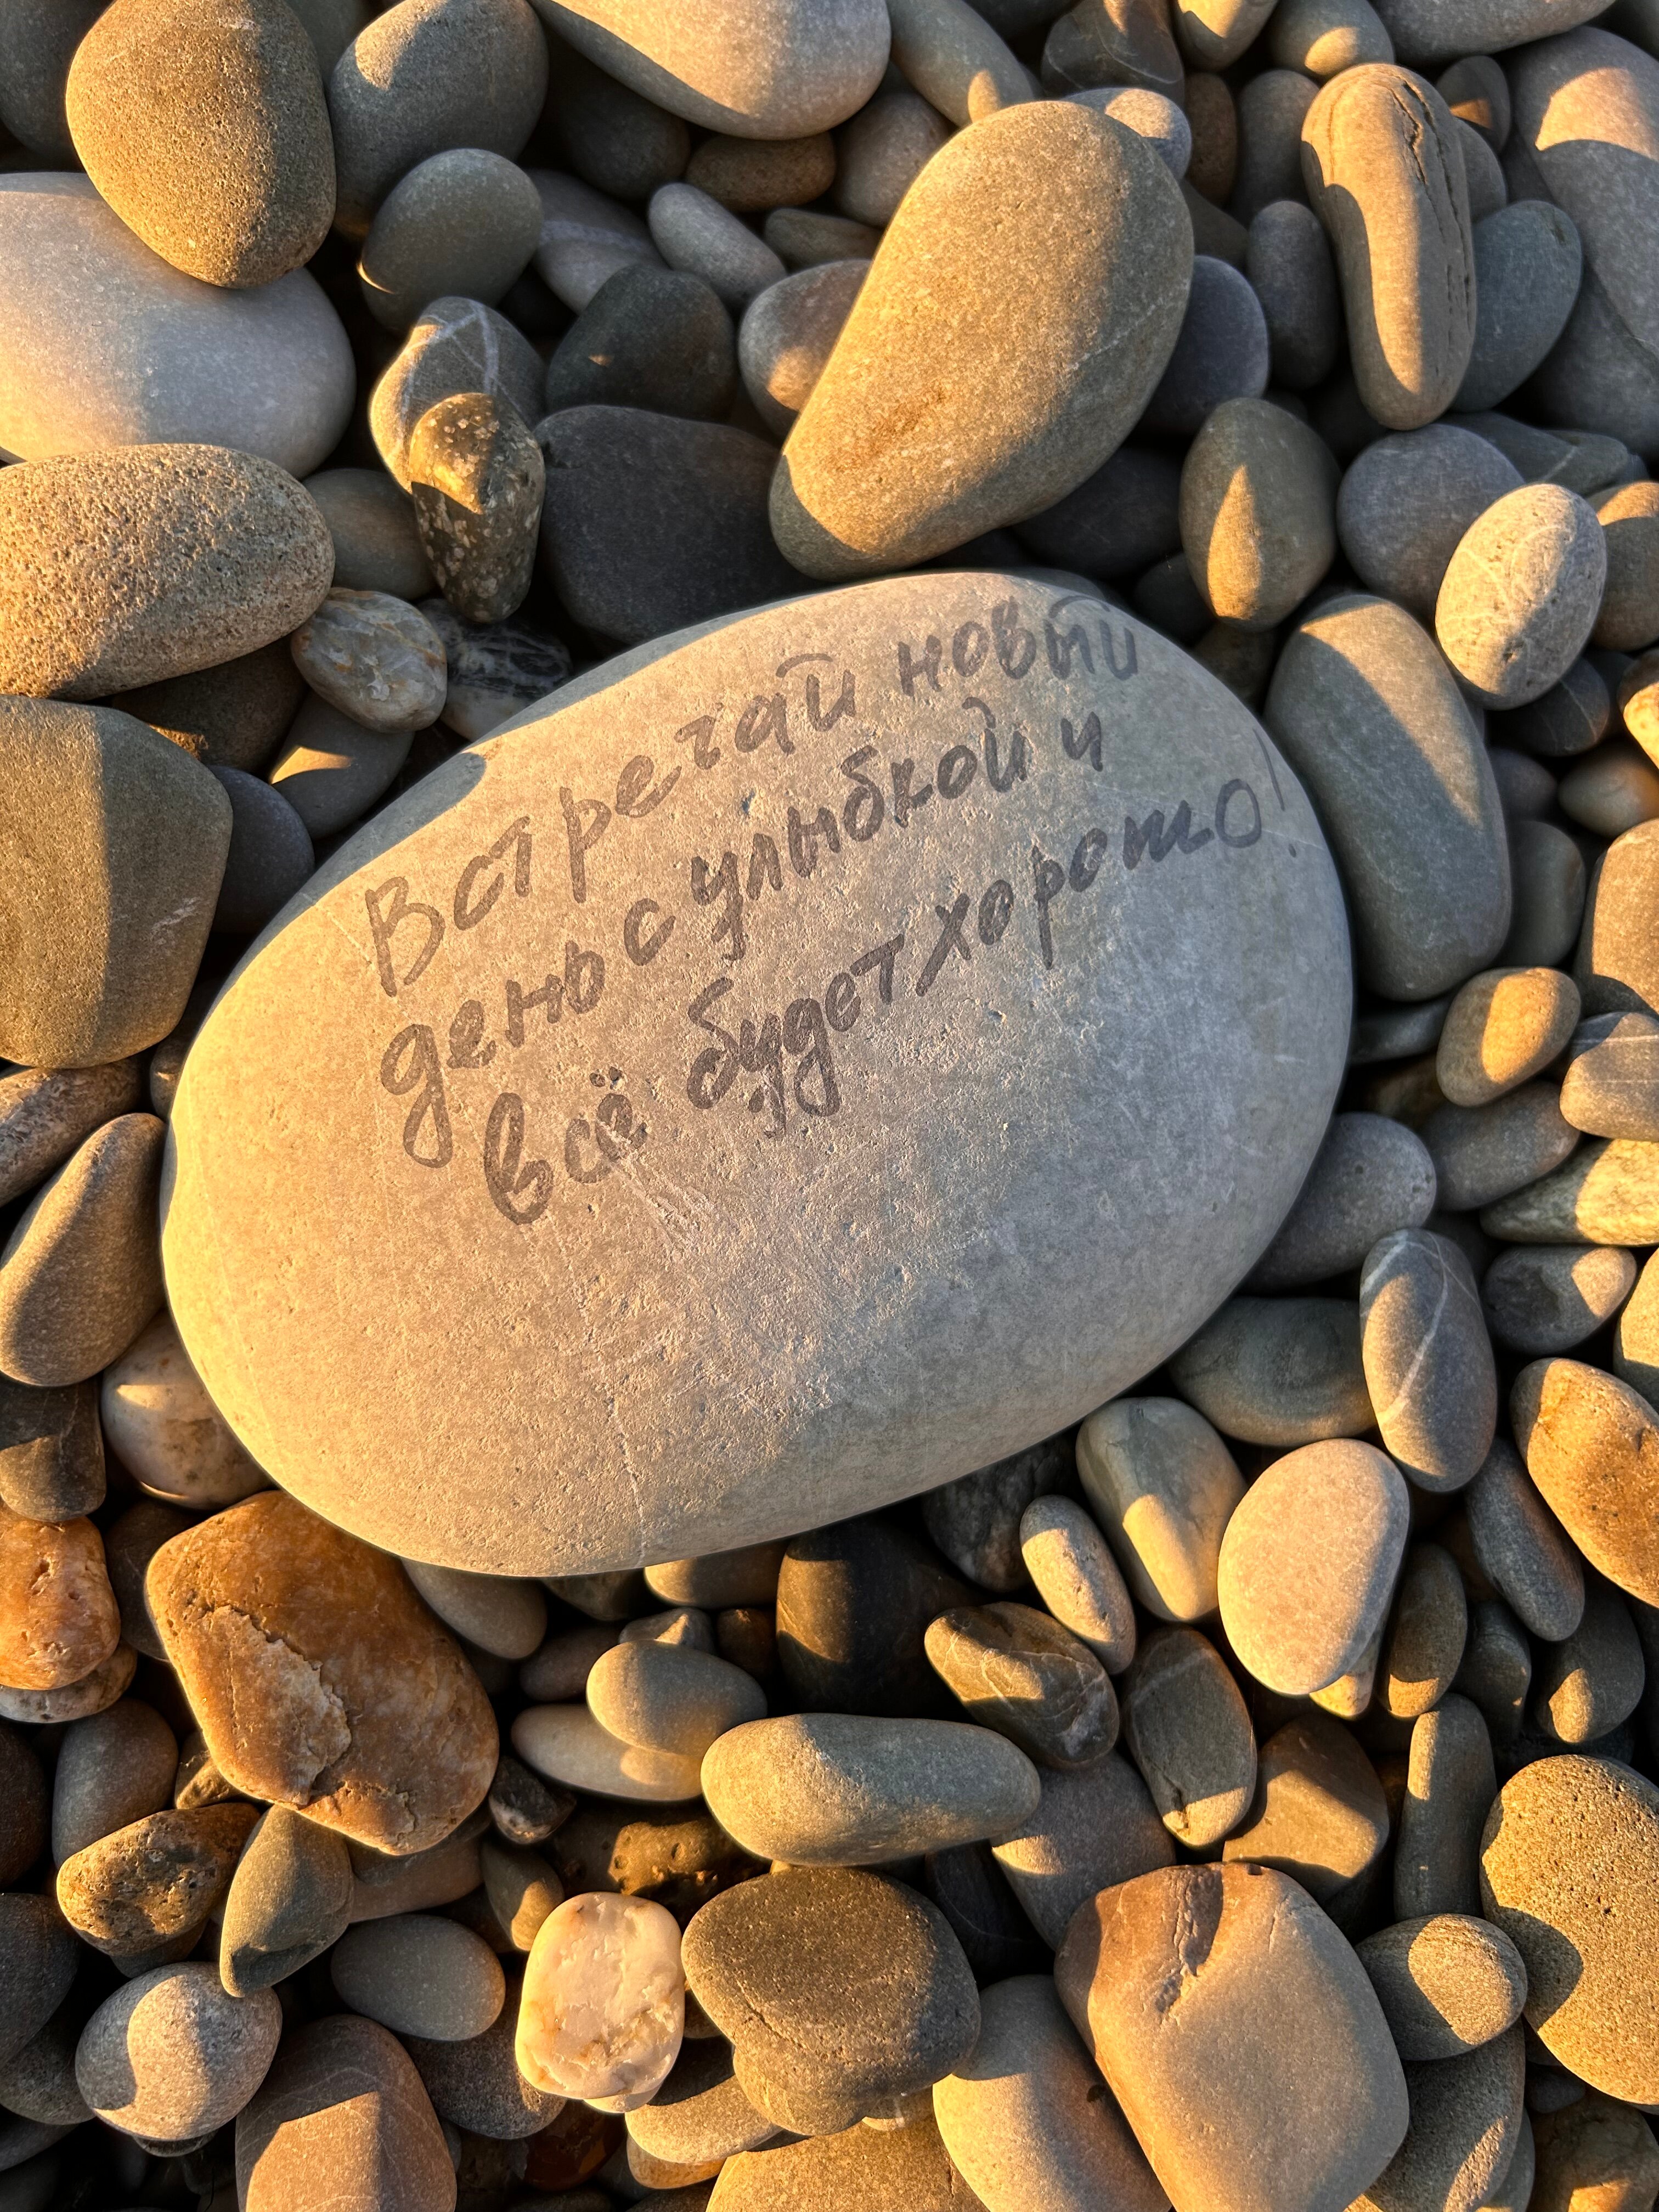 Встречай новый
день с улыбкой и
всё будет хорошо!